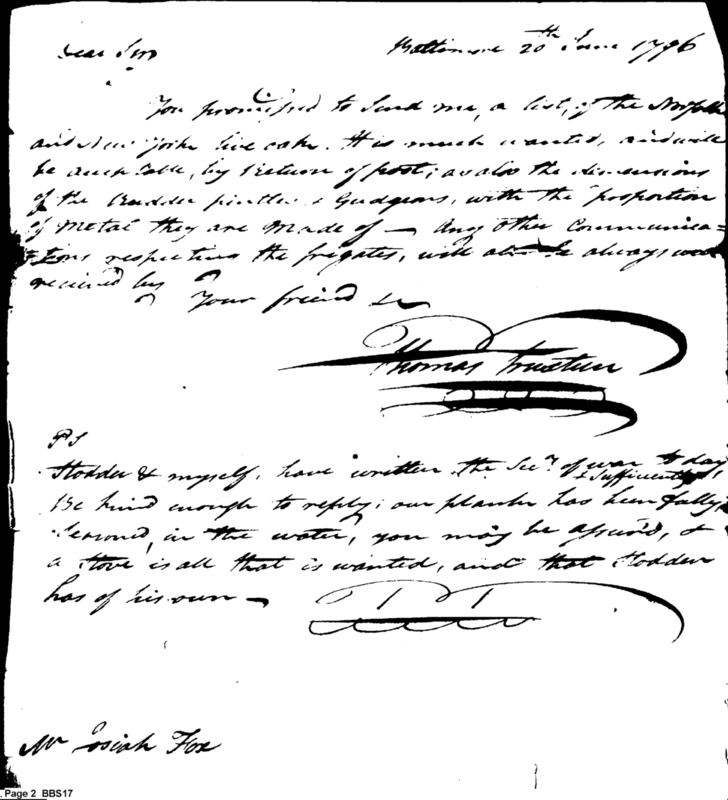 Baltimore 20th June 1796
Dear Sir
You promised to send me, a list, of the Norfolk
and New York live oak. It is much wanted, and will
be acceptable, by return of post; as also the dimensions
of the Rudder pintles & Gudgeons, with the proportion
of Metal they are Made of — Any other Communica=
tions respecting the frigates, will always
recieved by
Your friend &c
Thomas Truxtun
PS
Stodder & myself, have written the Secy of war to day,
Be kind enough to reply; our planks has been fully & sufficiently
seasoned, in the water, you may be assured, &
a Stove is all that is wanted, and that Stodder
has of his own —
TT
Mr Josiah Fox
Page 2 BBS17